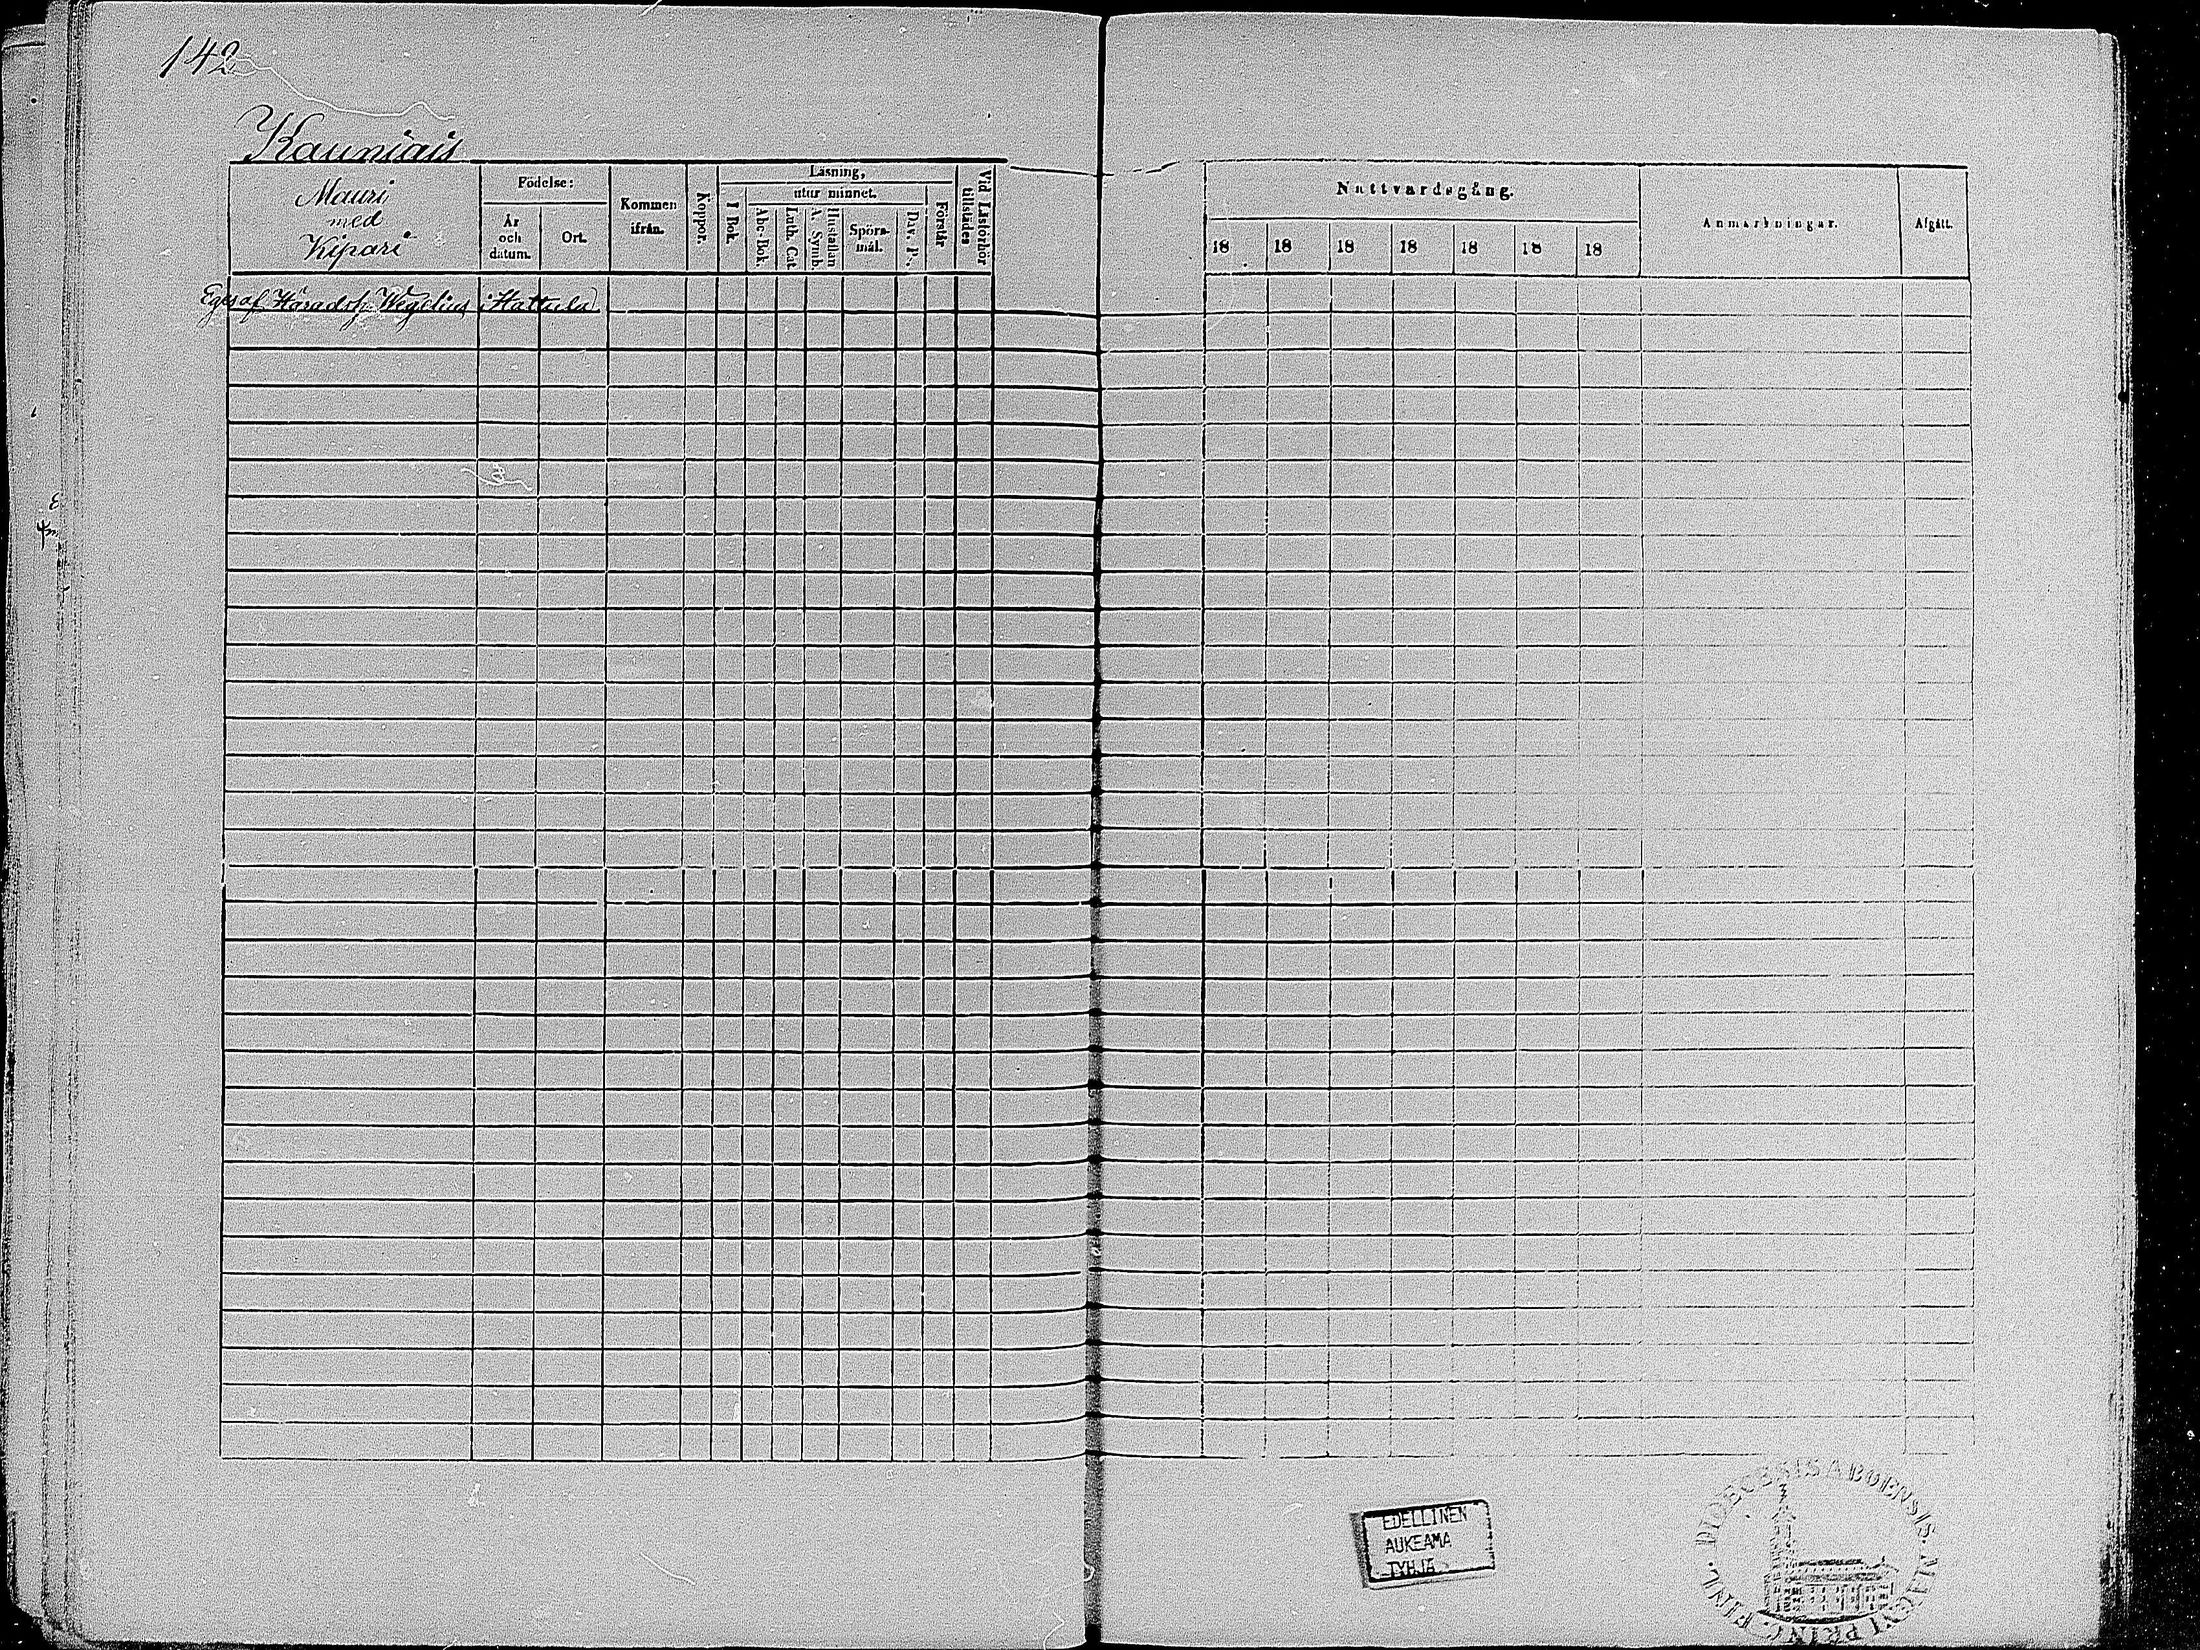 142
Kauniais
Mauri
med
Kipari
Födelse:
År
och
datum.
Ort.
Kommen
ifrån.
Koppor.
Läsning,
utur minnet.
I Bok.
Abc-Bok.
Luth. Cat.
Hustaflan
A. Symb.
Spörs-
mål.
Dav. Ps.
Förstår
Vid Läsförhör
tillstädes
Nattvardsgång.
18 18 18 18 18 18 18
Anmärkningar.
Afgått.
Eges af Häradsh Wegelius i Hattula
EDELLINEN
AUKEAMA
TYHJÄ
DIOECESIS ABOENSIS